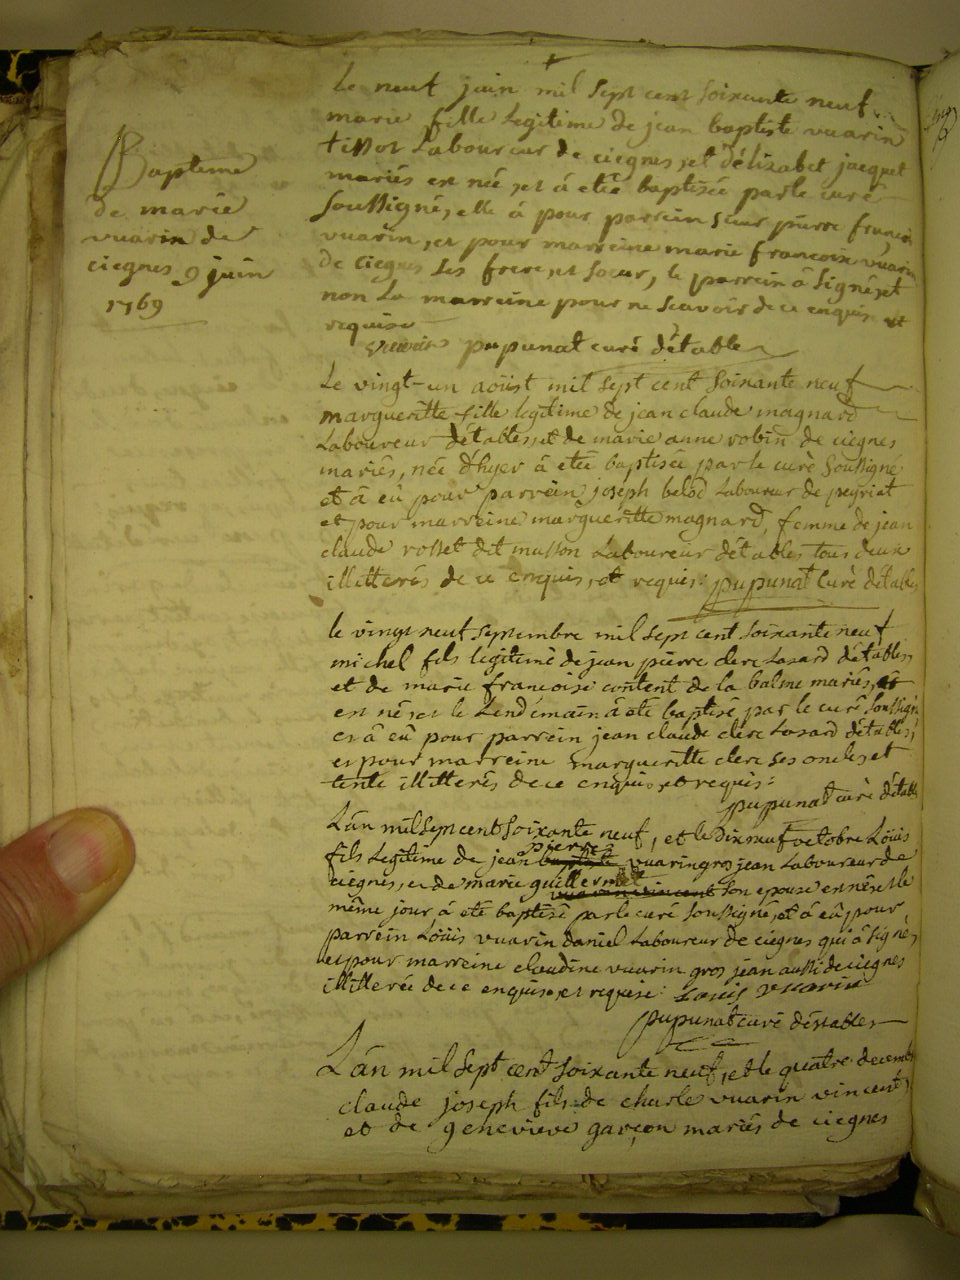 Bapteme
de marie
vuarin de
ciegnes 9 juin
1769
Le neuf juin mil sept cent soixante neuf
marie fille legitime de jean baptiste vuarin
tissot Laboureur de ciegnes, et délizabet jacquet
mariés est née, et á etée baptisée par le curé
soussigné, elle á pour parrein sieur pierre francois
vuarin, et pour marreine marie francoise vuarin
de ciegnes ses frere, et soeur, le parrein á signé, et
non la marreine pour ne scavoir de ce enquise et
requise
vuarin pupunat curé détables
Le vingt-un aoüst mil sept cent soixante neuf
margueritte fille legitime de jean claude magnard
Laboureur détables, et de marie anne robin de ciegnes
mariés, née d'hyer á etée baptisée par le curé soussigné
et á eû pour parrein joseph belod Laboureur de peyriat
et pour marreine margueritte magnard, femme de jean
claude rosset dit musson Laboureur détables tous deux
illitterés de ce enquis, et requis: pupunat Curé détables
le vingt neuf septembre mil sept cent soixante neuf
michel fils legitime de jean pierre clerc Lasard détables,
et de marie francoise content de la balme mariés,
est né, et le Lendemain á eté baptisé par le curé soussigné
et á eû pour parrein jean claude clerc Lasard détables,
et pour marreine margueritte clerc ses oncles, et
tente illitterés de ce enquis, et requis:
pupunat curé détables
L'án mil sept cent soixante neuf, et le Dixneuf octobre Loüis
pierre
fils Legitime de jean baptiste vuarin gros jean Laboureur de
ciegnes, et de marie guillermet son epouse est né, et le
même jour á eté baptisé par le curé soussigné, et á eû pour
parrein Loüis vuarin daniel Laboureur de ciegnes qui á signé,
et pour marreine claudine vuarin gros jean aussi de ciegnes
illiterée de ce enquise, et requise: Louis vuarin
pupunat curé déstables
L'án mil sept cent soixante neuf, et le quatre decembre
claude joseph fils de charle vuarin vincent,
et de genevieve garçon mariés de ciegnes